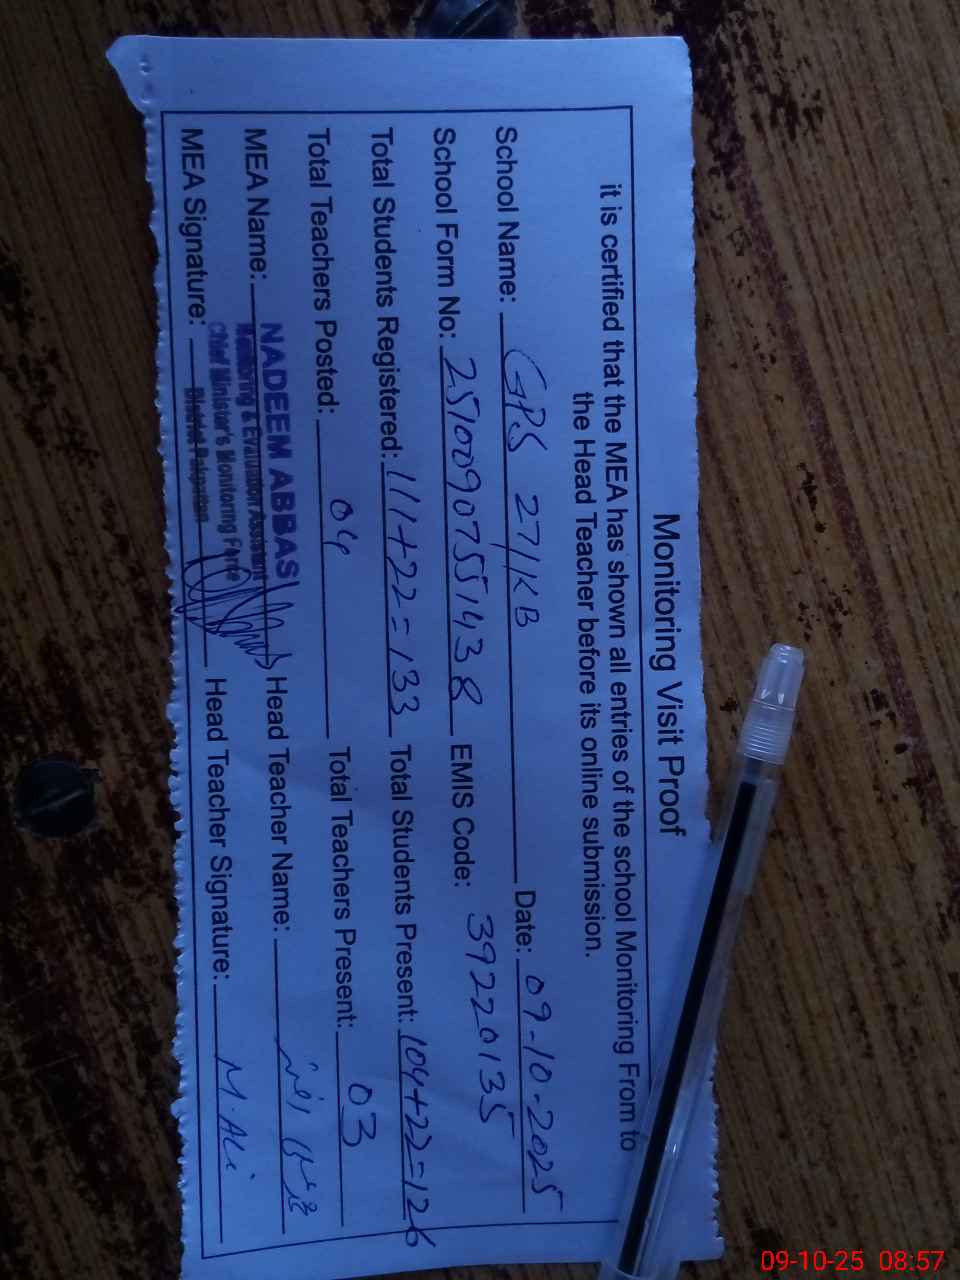 Monitoring Visit Proof
it is certified that the MEA has shown all entries of the school Monitoring From to
the Head Teacher before its online submission.
School Name: GPS 27/KB Date: 09-10-2025
School Form No: 25100907551438 EMIS Code: 39220135
Total Students Registered: 111+22=133 Total Students Present: 104+22=126
Total Teachers Posted: 04 Total Teachers Present: 03
MEA Name: NADEEM ABBAS Head Teacher Name:
Monitoring & Evaluation Assistant
Chief Minister's Monitoring Force
District Pakpattan
MEA Signature: Head Teacher Signature: M.Ali
09-10-25 08:57